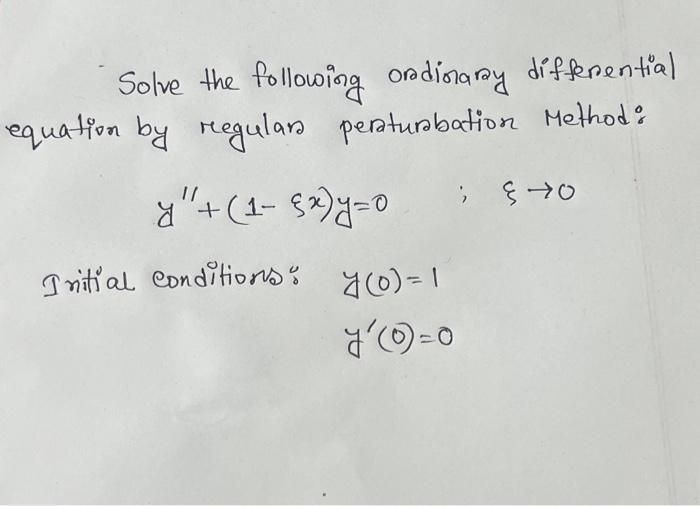 Solve the following ordinary differential
equation by regular perturbation Method:
y''+(1-ξx)y=0 ; ξ→0
Initial conditions: y(0)=1
y'(0)=0